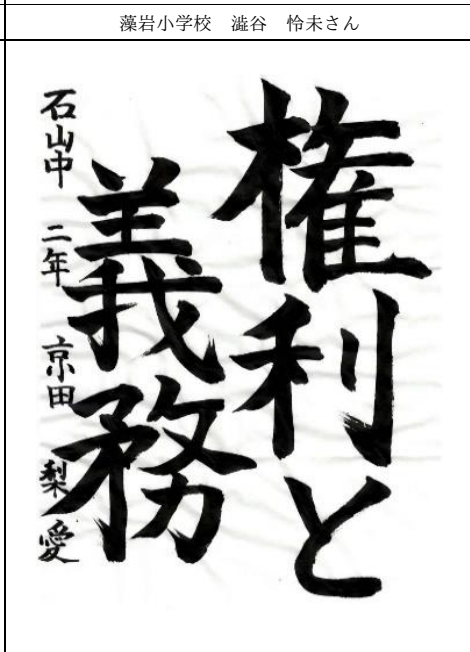 藻岩小学校　澁谷　怜未さん
権利と
義務
石山中　二年　京田　梨愛